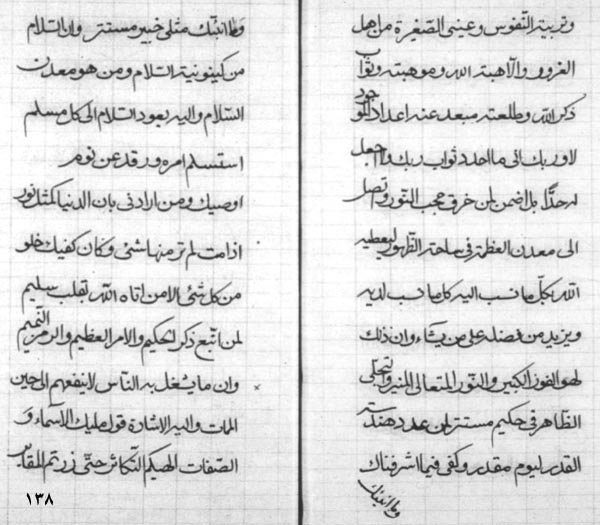 وتربية النفوس وعيني الصغيرة من اهل
الغرور والآ هبة الله وموهبته وثواب
ذكر الله وطلعته مبعد عنه اعداد
لا وربك اني ما احدد ثواب ربك واجعل
له حدّا بل اضمن لمن خرق حجب النور وتصل
الى معدن العظمة في ساحة الظهور ليعطيه
الله بكلّ ما نسب اليه كلما نسب لديه
ويزيد من فضله على من يشاء وان ذلك
لهو الفوز الكبير والنور المتعالى المنير والتجلى
الظاهر في حكيم مستتر بان عدد هندسة
القدر ليوم مقدر وكفى فيما اشرقناك
وما انبئك
وما انبئك مثلى خبير مستتر وان السلام
من كينونية السلام ومن هو معدن
السلام واليه يعود السلام الى كل مسلم
استسلم امره ورقد عن نومه
اوصيك ومن ارادنى بان الدنيا كمثل نور
اذا مت لم تر منها شئ وكان كفيك خلو
من كل شئ الا من اتاه الله بقلب سليم
لمن اتبع ذكر الحكيم والامر العظيم والرمز النميم
وان ما يشغل به الناس لا ينفعهم الى حين
الممات واليه الاشارة قول مليك الاسماء و
الصفات الهيكم التكاثر حتى زرتم المقابر
١٣٨